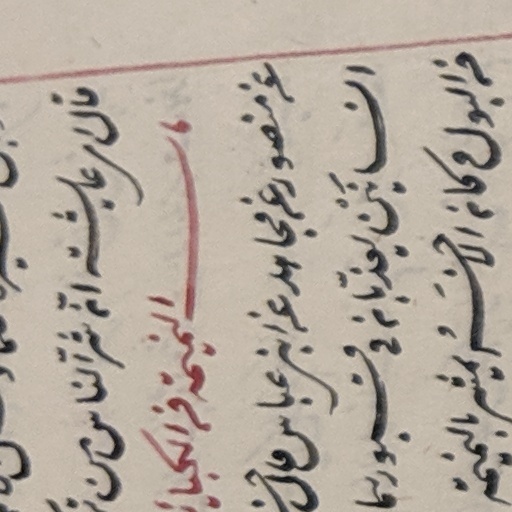 قال اى عايشة انّ شرّ الناس من
باب النميمة من الكبائر
عن منصور عن مجاهد عن ابن عباس قال
انسانَيْنِ يعذّبان فى قبورهما
من البول وكان الآخَرُ يمشى بالنميمة